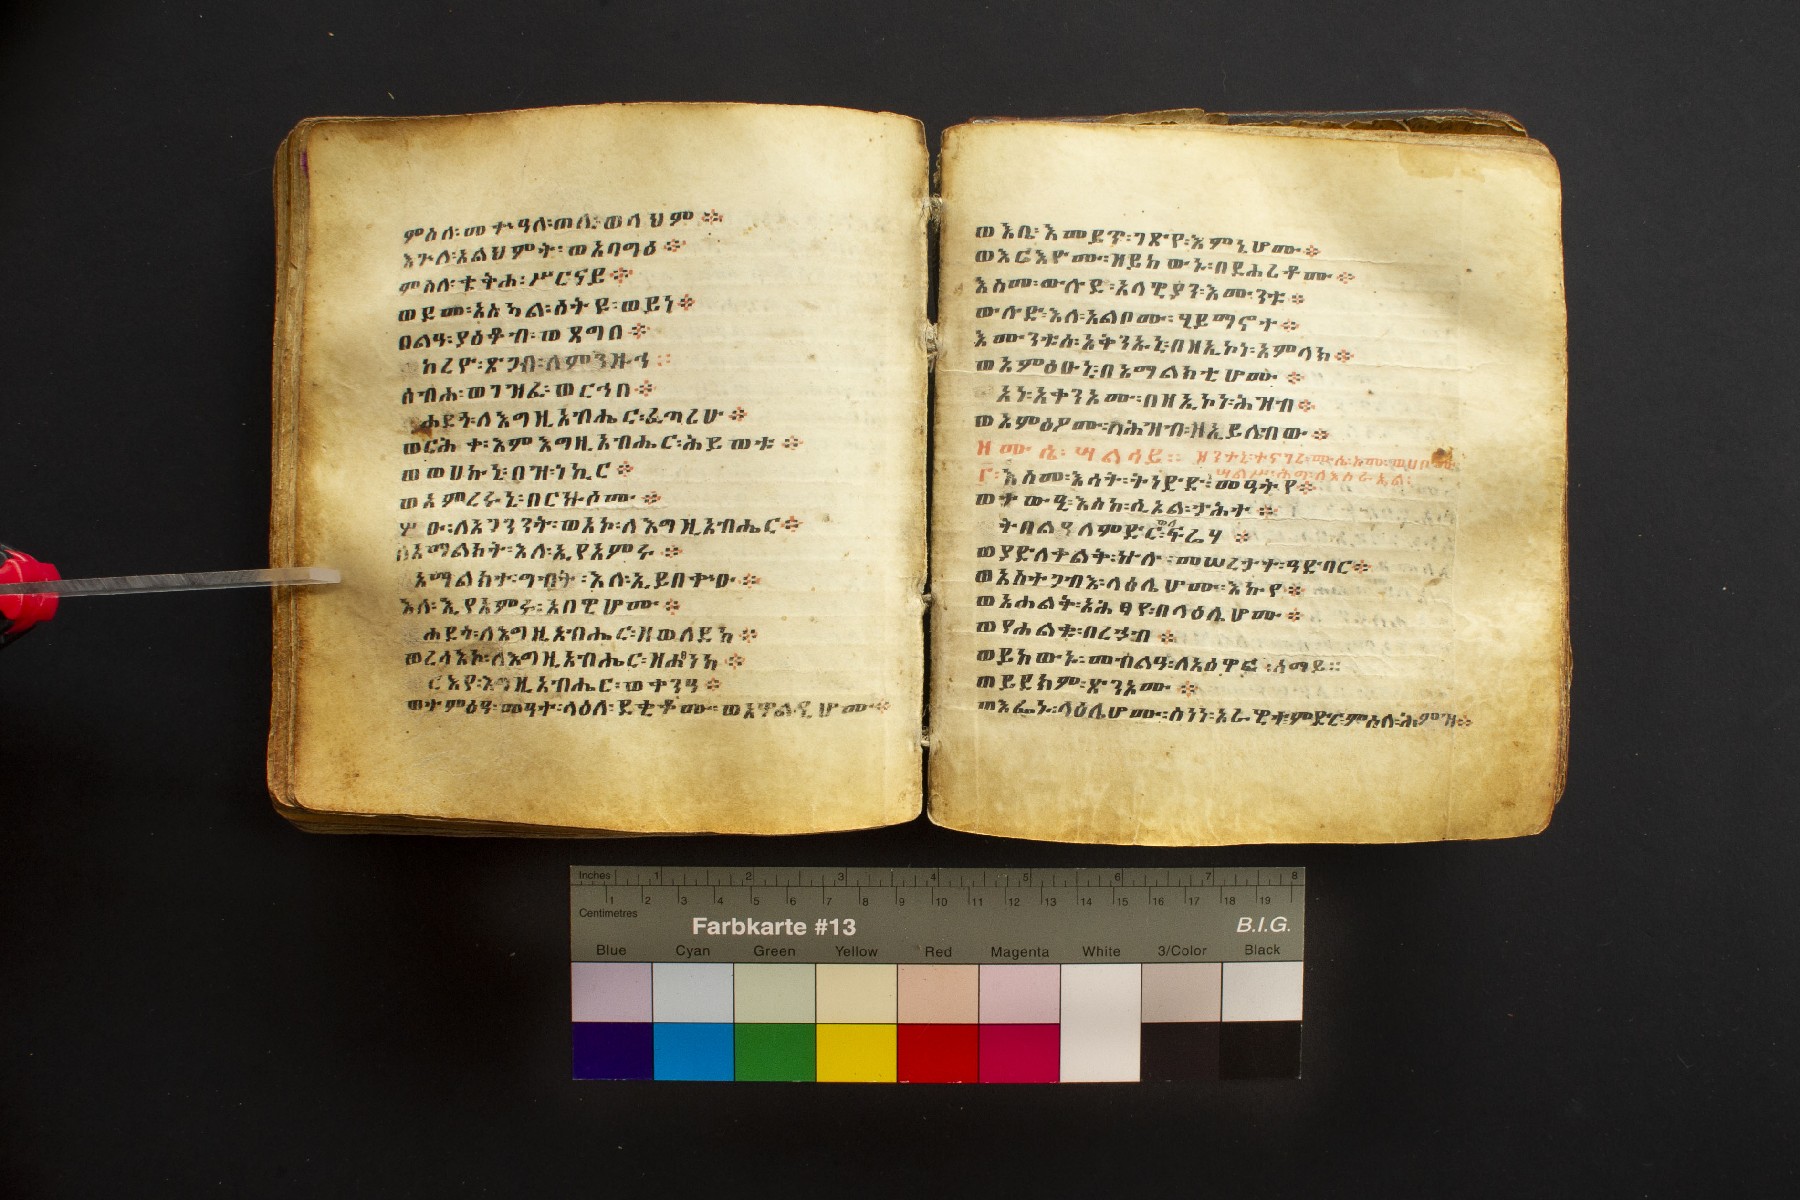 ምስለ፡መዋዓለ፡ወሊ፡ወላህም፨
እጒለ፡አልህምት፡ወአባግዕ፨
ምስለ፡ቄቅሐ፡ሥርናይ፨
ወደመ፡አስካል፡ሰትዩ፡ወይነ፨
በልዓ፡ያዕቆብ፡ወጸግበ፨
ከረዮ፡ጽጋብ፡ለምንዙኅ፨
ሰብሐ፡ወገዝፈ፡ወርኅበ፨
ሐደጎ፡ለእግዚአብሔር፡ፈጣሪሁ፨
ወርሕቀ፡እምእግዚአብሔር፡ሕይወቱ፨
ወወሀኩኒ፡በዝ፡ነኪር፨
ወአምረሩኒ፡በርኵሶሙ፨
ሦዑ፡ለአጋንንት፡ወአኮ፡ለእግዚአብሔር፨
በአማልክት፡እለ፡ኢየአምሩ፨
አማልክተ፡ግብት፡እለ፡ኢይበቍዑ፨
እለ፡ኢየአምሩ፡አበዊሆሙ፨
ሐደጎ፡ለእግዚአብሔር፡ዘወለደከ፨
ወረሳእኮ፡ለእግዚአብሔር፡ዘሐፀነከ፨
ርእየ፡እግዚአብሔር፡ወቀንዓ፨
ወተምዕዓ፡መዓተ፡ላዕለ፡ደቂቆሙ፡ወአዋልዲሆሙ፨
ወእቤ፡እመይጥ፡ገጽየ፡እምኒሆሙ፨
ወእርእዮሙ፡ዘይከውኑ፡በደሐሪቶሙ፨
እስመ፡ውሉድ፡አላዊያን፡እሙንቱ፨
ውሉድ፡እለ፡አልቦሙ፡ሃይማኖተ፨
እሙንቱሰ፡አቅንኡኒ፡በዘኢኮነ፡አምላክ፨
ወአምዕዑኒ፡በአማልክቲሆሙ፨
አነ፡አቀንኦሙ፡በዘኢኮነ፡ሕዝብ፨
ወአምዕዖሙ፡በሕዝብ፡ዘኢይሌብው፨
ዘሙሴ፡ሣልሳይ፡፡
፫፡እስመ፡እሳት፡ትነድድ፡መዓትየ፨
ወተውዒ፡እስከ፡ሲኦል፡ታሕተ፨
ትበልዓ፡ለምድር፡ፍሬሃ፨
ወያድለቀልቅ፡ኵሉ፡መሠረታተ፡ዓድባር፨
ወአስተጋብእ፡ላዕሌሆሙ፡እኩየ፨
ወአሐልቅ፡አሕፃየ፡በላዕሌሆሙ፨
ወየሐልቁ፡በረኃብ፨
ወይከውኑ፡መብልዓ፡ለአዕዋፈ፡ሰማይ፡፡
ወይደክም፡ጽንኦሙ፨
ወእፌኑ፡ላዕሌሆሙ፡ስነነ፡አራዊተ፡ምድር፡ምስለ፡ሕምዝ፨
Inches 1 2 3 4 5 6 7 8
1 2 3 4 5 6 7 8 9 10 11 12 13 14 15 16 17 18 19
Centimetres
Farbkarte #13 B.I.G.
Blue Cyan Green Yellow Red Magenta White 3/Color Black